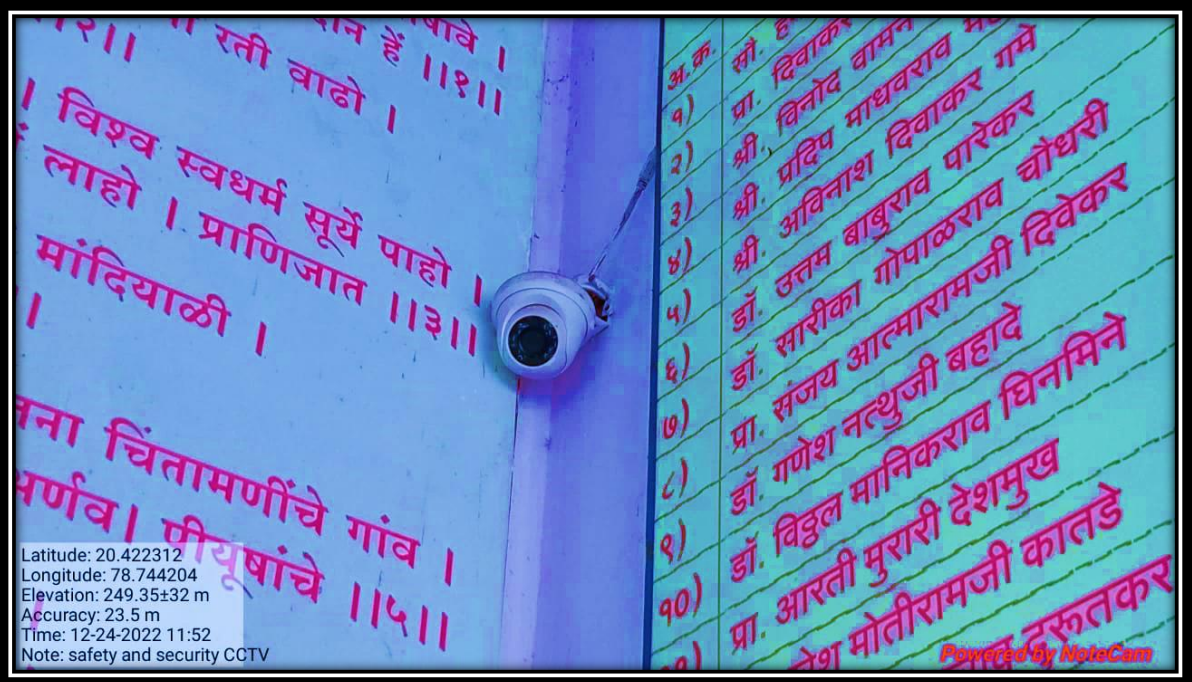 दान हें ।।१।।
रती वाढो ।
२।।
। विश्व स्वधर्म सूर्ये पाहो ।
लाहो । प्राणिजात ।।३।।
मांदियाळी ।
।।
चिंतामणींचे गांव ।
अर्णव। पीयूषांचे ।।५।।
अ.क्र.
१) सौ.
२) प्रा. दिवाकर
३) श्री. विनोद वामन
४) श्री. प्रदिप माधवराव
५) श्री. अविनाश दिवाकर गमे
६) डॉ. उत्तम बाबुराव पारेकर
७) डॉ. सारीका गोपाळराव चौधरी
८) प्रा. संजय आत्मारामजी दिवेकर
९) डॉ. गणेश नत्थुजी बहादे
१०) डॉ. विठ्ठल मानिकराव घिनमिने
११) प्रा. आरती मुरारी देशमुख
मोतीरामजी कातडे
Latitude: 20.422312
Longitude: 78.744204
Elevation: 249.35±32 m
Accuracy: 23.5 m
Time: 12-24-2022 11:52
Note: safety and security CCTV
Powered by NoteCam